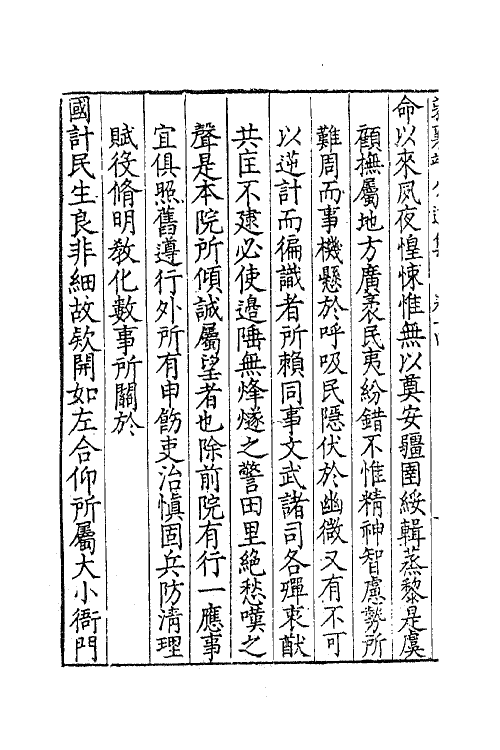 命以來夙夜惶悚惟無以奠安疆圉綏輯蒸黎是虞
顧撫屬地方廣袤民夷紛錯不惟精神智慮勢所
難周而事機懸於呼吸民隱伏於幽微又有不可
以逆計而徧識者所賴同事文武諸司各殫衷猷
共匡不逮必使邊陲無烽燧之警田里絕愁嘆之
聲是本院所傾誠屬望者也除前院有行一應事
宜俱照舊遵行外所有申飭吏治慎固兵防清理
賦役脩明教化數事所關於
國計民生良非細故欵開如左合仰所屬大小衙門